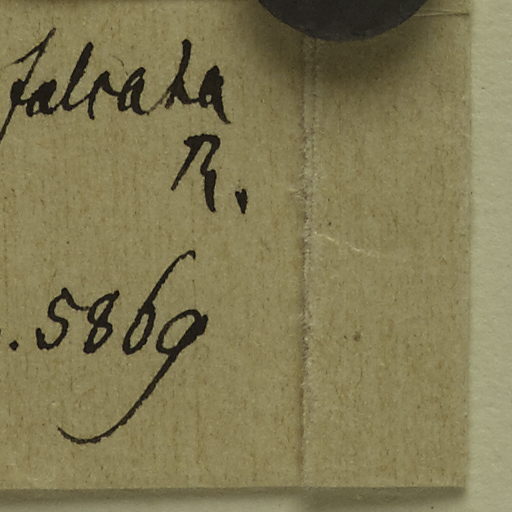 falcata
R.
. 5869